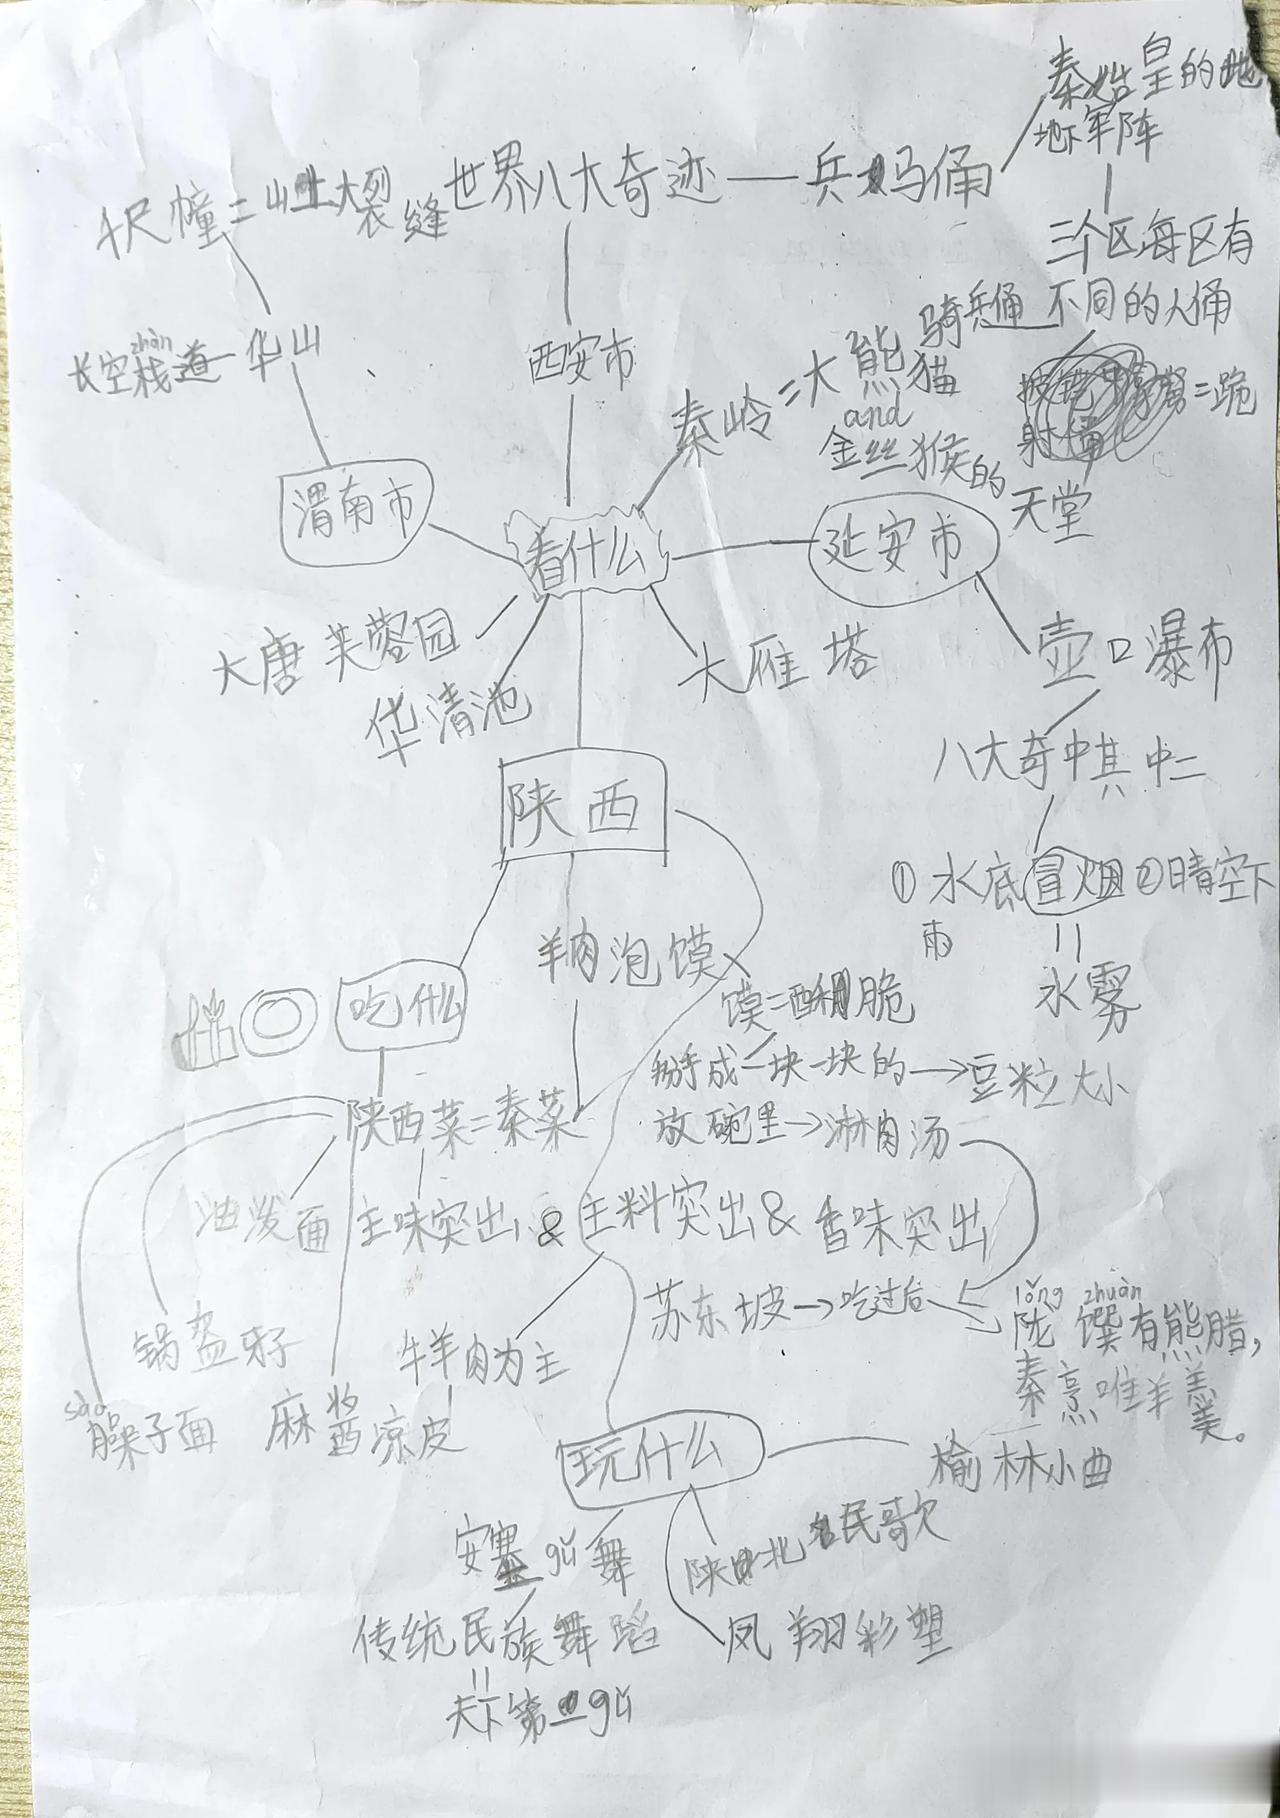 秦始皇的地
地下军阵
千尺幢=山上大裂缝
世界八大奇迹—兵马俑
三个区每区有
不同的人俑
骑兵俑
跪
射俑
zhàn
长空栈道—华山
西安市
秦岭=大熊猫
and
金丝猴的
天堂
渭南市
看什么
延安市
大唐芙蓉园
华清池
大雁塔
壶口瀑布
八大奇中其中二
①水底冒烟②晴空下
雨
=
水雾
陕西
羊肉泡馍
吃什么
馍=酥脆
掰成一块一块的→豆粒大小
放碗里→淋肉汤
陕西菜=秦菜
油泼面
主味突出&主料突出&香味突出
苏东坡→吃过后
lǒng zhuàn
陇馔有熊腊,
秦烹唯羊羹。
锅盔牙子
牛羊肉为主
sào
臊子面
麻酱凉皮
玩什么
榆林小曲
安塞gǔ舞
陕北民歌
传统民族舞蹈
=
天下第一gǔ
凤翔彩塑